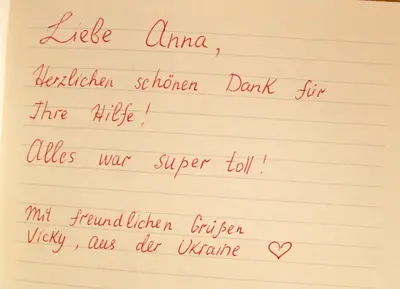 Liebe Anna,
Herzlichen schönen Dank für
Ihre Hilfe!
Alles war super toll!
Mit freundlichen Grüßen
Vicky, aus der Ukraine ♡